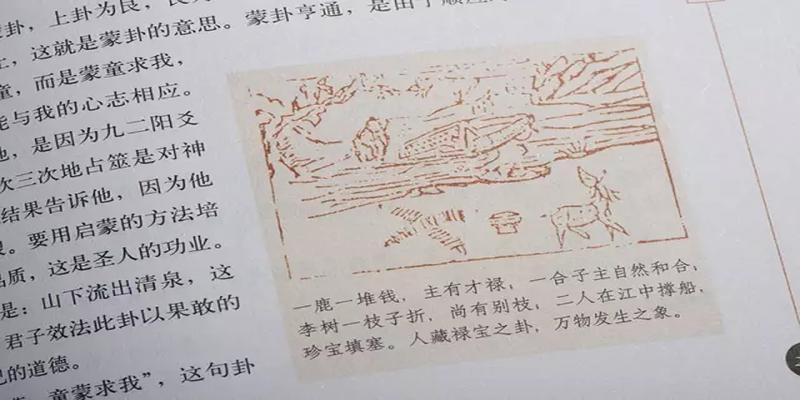 卦，上卦为艮，
，这就是蒙卦的意思。蒙卦亨通，是由于顺
童，而是蒙童求我，
能与我的心志相应。
他，是因为九二阳爻
次三次地占筮是对神
结果告诉他，因为他
。要用启蒙的方法培
品质，这是圣人的功业。
是：山下流出清泉，这
君子效法此卦以果敢的
的道德。
童蒙求我”，这句卦
一鹿一堆钱，主有才禄，一合子主自然和合，
李树一枝子折，尚有别枝，二人在江中撑船，
珍宝填塞。人藏禄宝之卦，万物发生之象。